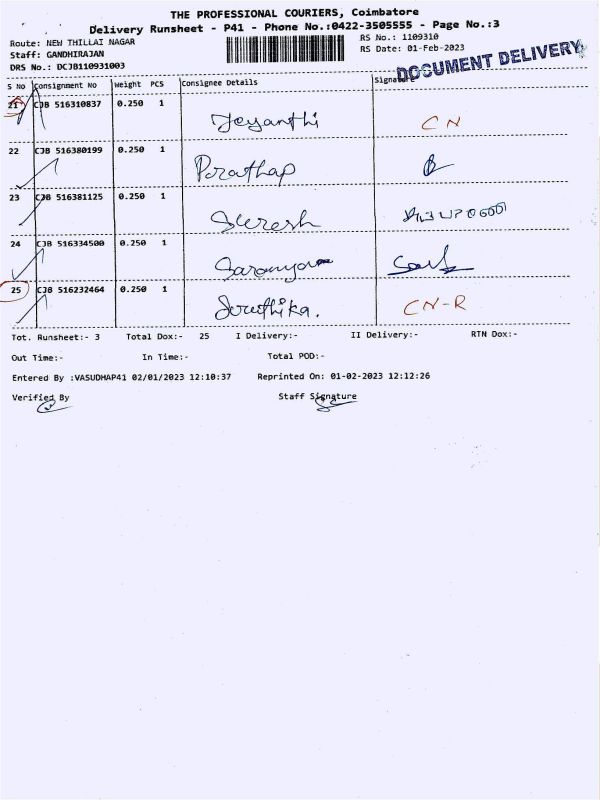 THE PROFESSIONAL COURIERS, Coimbatore
Delivery Runsheet - P41 - Phone No.:0422-3505555 - Page No.:3
Route: NEW THILLAI NAGAR
RS No.: 1109310
Staff: GANDHIRAJAN
RS Date: 01-Feb-2023
DRS No.: DCJB110931003
DOCUMENT DELIVERY
S No Consignment No Weight PCS Consignee Details Signature
21 CJB 516310837 0.250 1 Jeyanthi CN
22 CJB 516380199 0.250 1 Prathap
23 CJB 516381125 0.250 1 Suresh
24 CJB 516334500 0.250 1 Saranya
25 CJB 516232464 0.250 1 Sruthika. CN-R
Tot. Runsheet:- 3 Total Dox:- 25 I Delivery:- II Delivery:- RTN Dox:-
Out Time:- In Time:- Total POD:-
Entered By :VASUDHAP41 02/01/2023 12:10:37 Reprinted On: 01-02-2023 12:12:26
Verified By Staff Signature